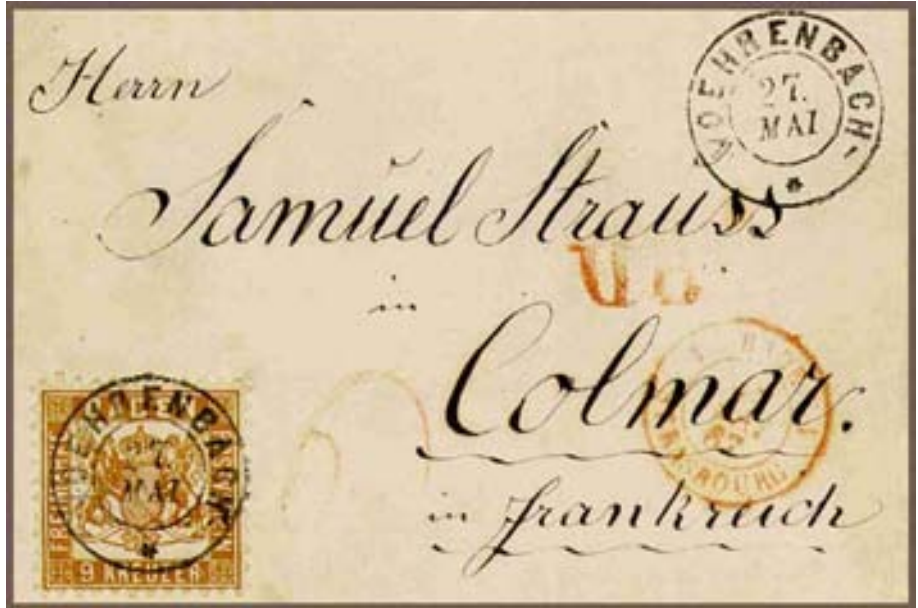 Herrn
VOEHRENBACH
27.
MAI
Samuel Strauss
in
Colmar.
in Frankreich
VOEHRENBACH
27.
MAI
FREIMARKE
9 KREUZER